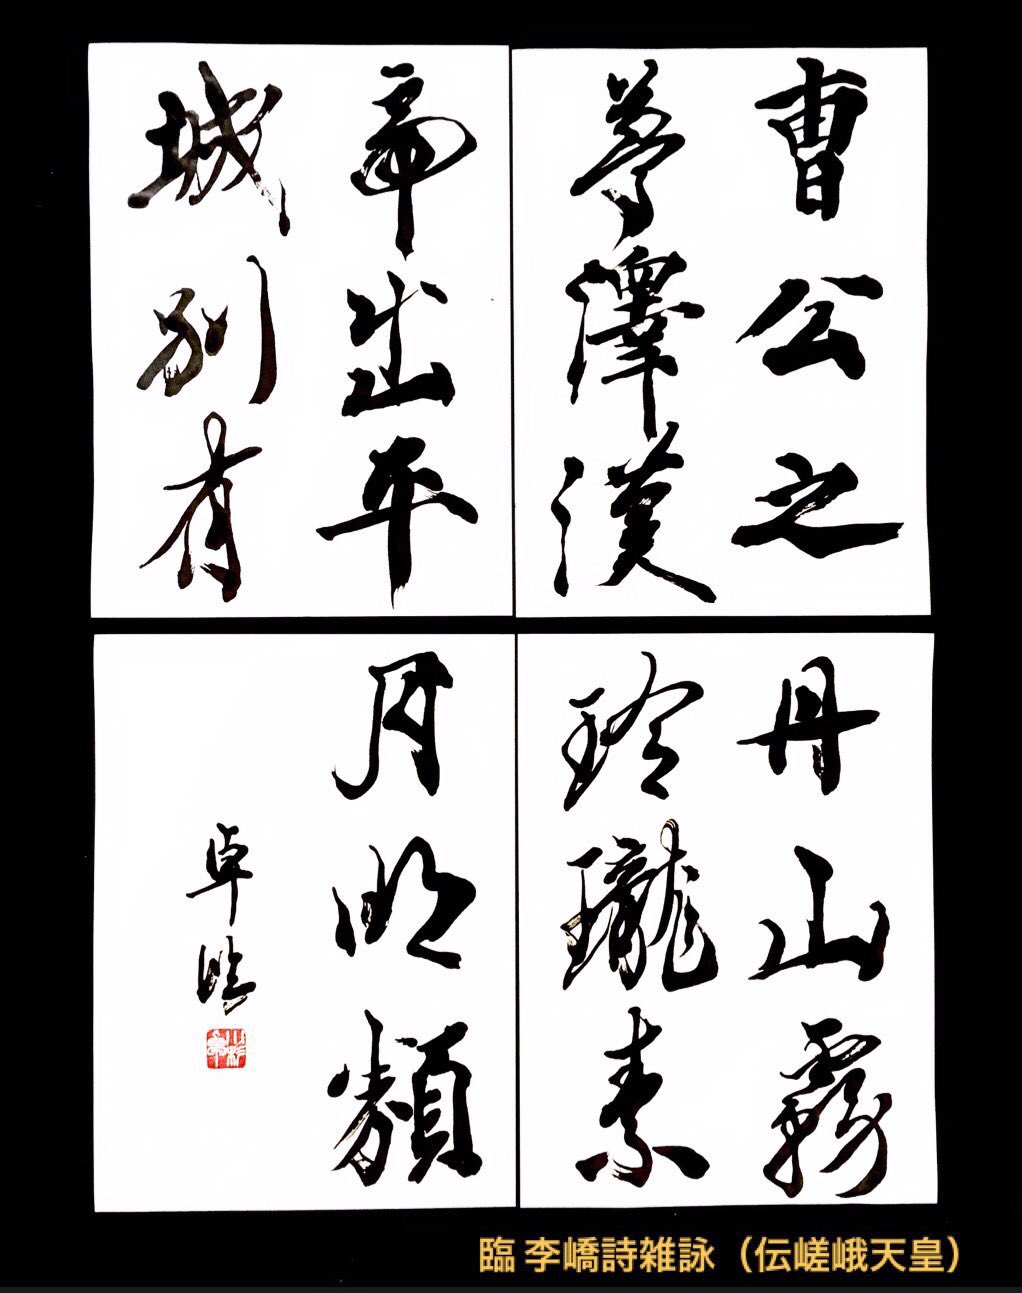 曹公之
夢澤漢
帝出平
城別有
丹山霧
玲瓏素
月明類
卓臨
臨 李嶠詩雑詠（伝嵯峨天皇）